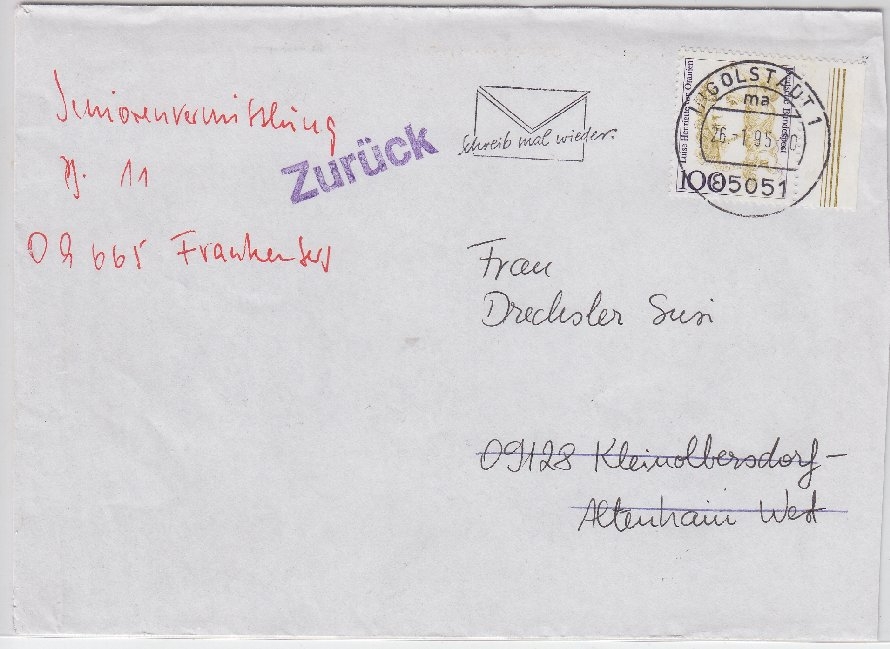 Seniorenvermittlung
11
Zurück
Schreib mal wieder.
INGOLSTADT 1
ma
26.-1.95
85051
100
Luise Henriette von Oranien
Deutsche Bundespost
Frau
Drechsler Susi
09128 Kleinolbersdorf-
Altenhain West